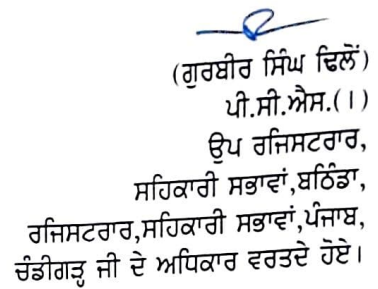 (ਗੁਰਬੀਰ ਸਿੰਘ ਢਿਲੋਂ)
ਪੀ.ਸੀ.ਐਸ.(।)
ਉਪ ਰਜਿਸਟਰਾਰ,
ਸਹਿਕਾਰੀ ਸਭਾਵਾਂ,ਬਠਿੰਡਾ,
ਰਜਿਸਟਰਾਰ,ਸਹਿਕਾਰੀ ਸਭਾਵਾਂ,ਪੰਜਾਬ,
ਚੰਡੀਗੜ੍ਹ ਜੀ ਦੇ ਅਧਿਕਾਰ ਵਰਤਦੇ ਹੋਏ।